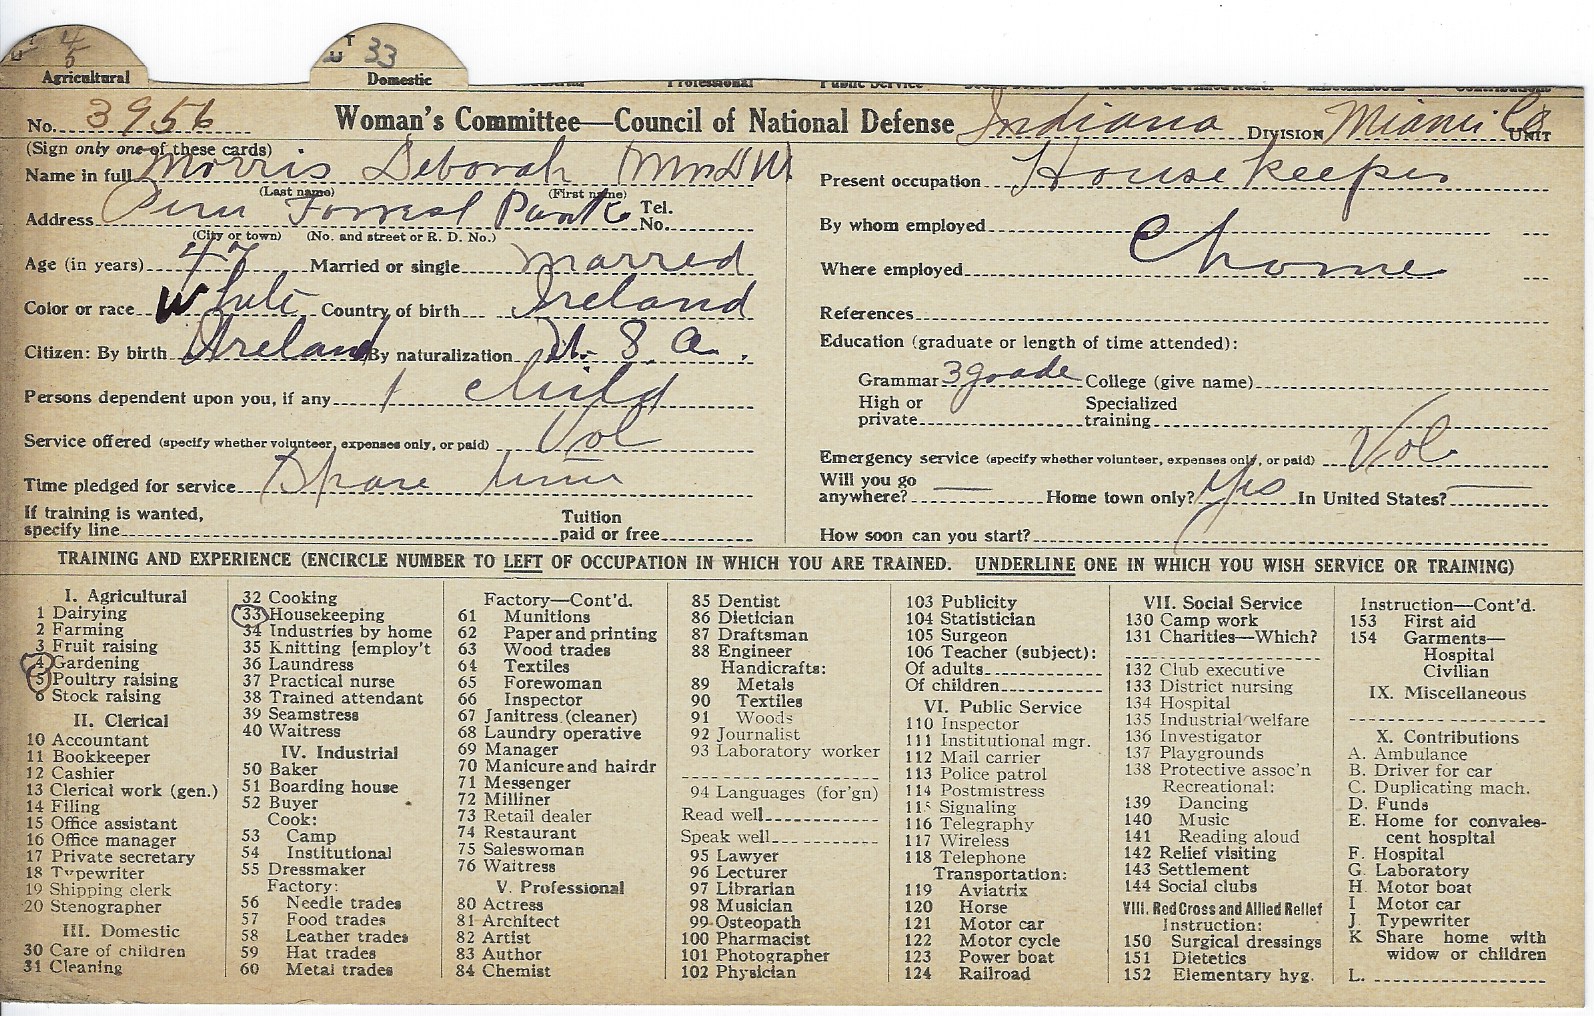 T U 4 5
T U 33
Agricultural Domestic Professional Public Service
No. 3956 Woman's Committee—Council of National Defense Indiana DIVISION Miami Co UNIT
(Sign only one of these cards)
Name in full Morris Deborah (Mrs D W)
(Last name) (First name)
Address Peru Forrest Park Tel. No.
(City or town) (No. and street or R. D. No.)
Age (in years) 47 Married or single marred
Color or race White Country of birth Ireland
Citizen: By birth Ireland By naturalization U. S. A.
Persons dependent upon you, if any 1 child
Service offered (specify whether volunteer, expenses only, or paid) Vol
Time pledged for service Spare time
If training is wanted, specify line Tuition paid or free
Present occupation House keeper
By whom employed
Where employed @ home
References
Education (graduate or length of time attended):
Grammar 3 grade College (give name)
High or private Specialized training
Emergency service (specify whether volunteer, expenses only, or paid) Vol
Will you go anywhere? — Home town only? Yes In United States? —
How soon can you start?
TRAINING AND EXPERIENCE (ENCIRCLE NUMBER TO LEFT OF OCCUPATION IN WHICH YOU ARE TRAINED. UNDERLINE ONE IN WHICH YOU WISH SERVICE OR TRAINING)
I. Agricultural
1 Dairying
2 Farming
3 Fruit raising
4 Gardening
5 Poultry raising
6 Stock raising
II. Clerical
10 Accountant
11 Bookkeeper
12 Cashier
13 Clerical work (gen.)
14 Filing
15 Office assistant
16 Office manager
17 Private secretary
18 Typewriter
19 Shipping clerk
20 Stenographer
III. Domestic
30 Care of children
31 Cleaning
32 Cooking
33 Housekeeping
34 Industries by home
35 Knitting [employ't
36 Laundress
37 Practical nurse
38 Trained attendant
39 Seamstress
40 Waitress
IV. Industrial
50 Baker
51 Boarding house
52 Buyer
Cook:
53 Camp
54 Institutional
55 Dressmaker
Factory:
56 Needle trades
57 Food trades
58 Leather trades
59 Hat trades
60 Metal trades
Factory—Cont'd.
61 Munitions
62 Paper and printing
63 Wood trades
64 Textiles
65 Forewoman
66 Inspector
67 Janitress (cleaner)
68 Laundry operative
69 Manager
70 Manicure and hairdr
71 Messenger
72 Milliner
73 Retail dealer
74 Restaurant
75 Saleswoman
76 Waitress
V. Professional
80 Actress
81 Architect
82 Artist
83 Author
84 Chemist
85 Dentist
86 Dietician
87 Draftsman
88 Engineer
Handicrafts:
89 Metals
90 Textiles
91 Woods
92 Journalist
93 Laboratory worker
94 Languages (for'gn)
Read well
Speak well
95 Lawyer
96 Lecturer
97 Librarian
98 Musician
99 Osteopath
100 Pharmacist
101 Photographer
102 Physician
103 Publicity
104 Statistician
105 Surgeon
106 Teacher (subject):
Of adults
Of children
VI. Public Service
110 Inspector
111 Institutional mgr.
112 Mail carrier
113 Police patrol
114 Postmistress
115 Signaling
116 Telegraphy
117 Wireless
118 Telephone
Transportation:
119 Aviatrix
120 Horse
121 Motor car
122 Motor cycle
123 Power boat
124 Railroad
VII. Social Service
130 Camp work
131 Charities—Which?
132 Club executive
133 District nursing
134 Hospital
135 Industrial welfare
136 Investigator
137 Playgrounds
138 Protective assoc'n
Recreational:
139 Dancing
140 Music
141 Reading aloud
142 Relief visiting
143 Settlement
144 Social clubs
VIII. Red Cross and Allied Relief
Instruction:
150 Surgical dressings
151 Dietetics
152 Elementary hyg.
Instruction—Cont'd.
153 First aid
154 Garments—
Hospital
Civilian
IX. Miscellaneous
X. Contributions
A. Ambulance
B. Driver for car
C. Duplicating mach.
D. Funds
E. Home for convales-
cent hospital
F. Hospital
G. Laboratory
H. Motor boat
I Motor car
J. Typewriter
K Share home with
widow or children
L.